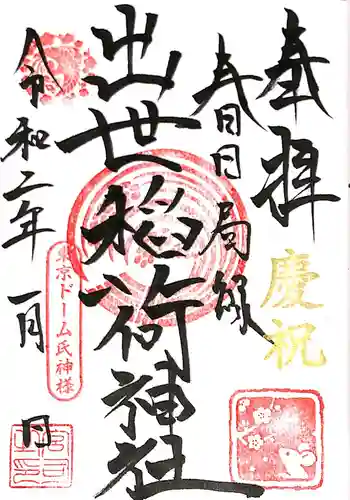 奉拝
慶祝
春日局縁
出世稲荷神社
令和二年一月 日
東京ドーム氏神様